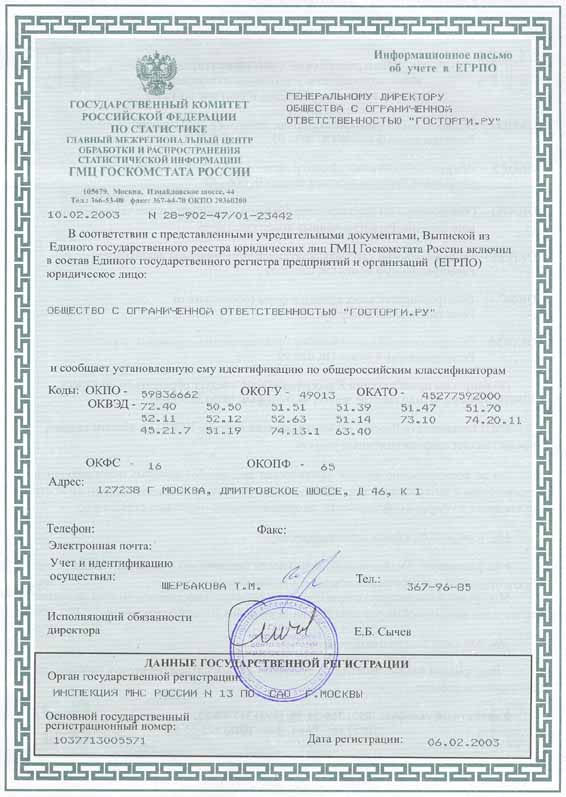 Информационное письмо
об учете в ЕГРПО
ГОСУДАРСТВЕННЫЙ КОМИТЕТ
РОССИЙСКОЙ ФЕДЕРАЦИИ
ПО СТАТИСТИКЕ
ГЛАВНЫЙ МЕЖРЕГИОНАЛЬНЫЙ ЦЕНТР
ОБРАБОТКИ И РАСПРОСТРАНЕНИЯ
СТАТИСТИЧЕСКОЙ ИНФОРМАЦИИ
ГМЦ ГОСКОМСТАТА РОССИИ
105679, Москва, Измайловское шоссе, 44
Тел.: 366-53-00 факс: 367-64-70 ОКПО 29360200
ГЕНЕРАЛЬНОМУ ДИРЕКТОРУ
ОБЩЕСТВА С ОГРАНИЧЕННОЙ
ОТВЕТСТВЕННОСТЬЮ "ГОСТОРГИ.РУ"
10.02.2003 N 28-902-47/01-23442
В соответствии с представленными учредительными документами, Выпиской из
Единого государственного реестра юридических лиц ГМЦ Госкомстата России включил
в состав Единого государственного регистра предприятий и организаций (ЕГРПО)
юридическое лицо:
ОБЩЕСТВО С ОГРАНИЧЕННОЙ ОТВЕТСТВЕННОСТЬЮ "ГОСТОРГИ.РУ"
и сообщает установленную ему идентификацию по общероссийским классификаторам
Коды: ОКПО - 59836662 ОКОГУ - 49013 ОКАТО - 45277592000
ОКВЭД - 72.40 50.50 51.51 51.39 51.47 51.70
52.11 52.12 52.63 51.14 73.10 74.20.11
45.21.7 51.19 74.13.1 63.40
ОКФС - 16 ОКОПФ - 65
Адрес:
127238 Г МОСКВА, ДМИТРОВСКОЕ ШОССЕ, Д 46, К 1
Телефон: Факс:
Электронная почта:
Учет и идентификацию
осуществил: ЩЕРБАКОВА Т.М. Тел.: 367-96-85
Исполняющий обязанности
директора Е.Б. Сычев
ДАННЫЕ ГОСУДАРСТВЕННОЙ РЕГИСТРАЦИИ
Орган государственной регистрации:
ИНСПЕКЦИЯ МНС РОССИИ N 13 ПО САО Г.МОСКВЫ
Основной государственный
регистрационный номер:
1037713005571
Дата регистрации: 06.02.2003